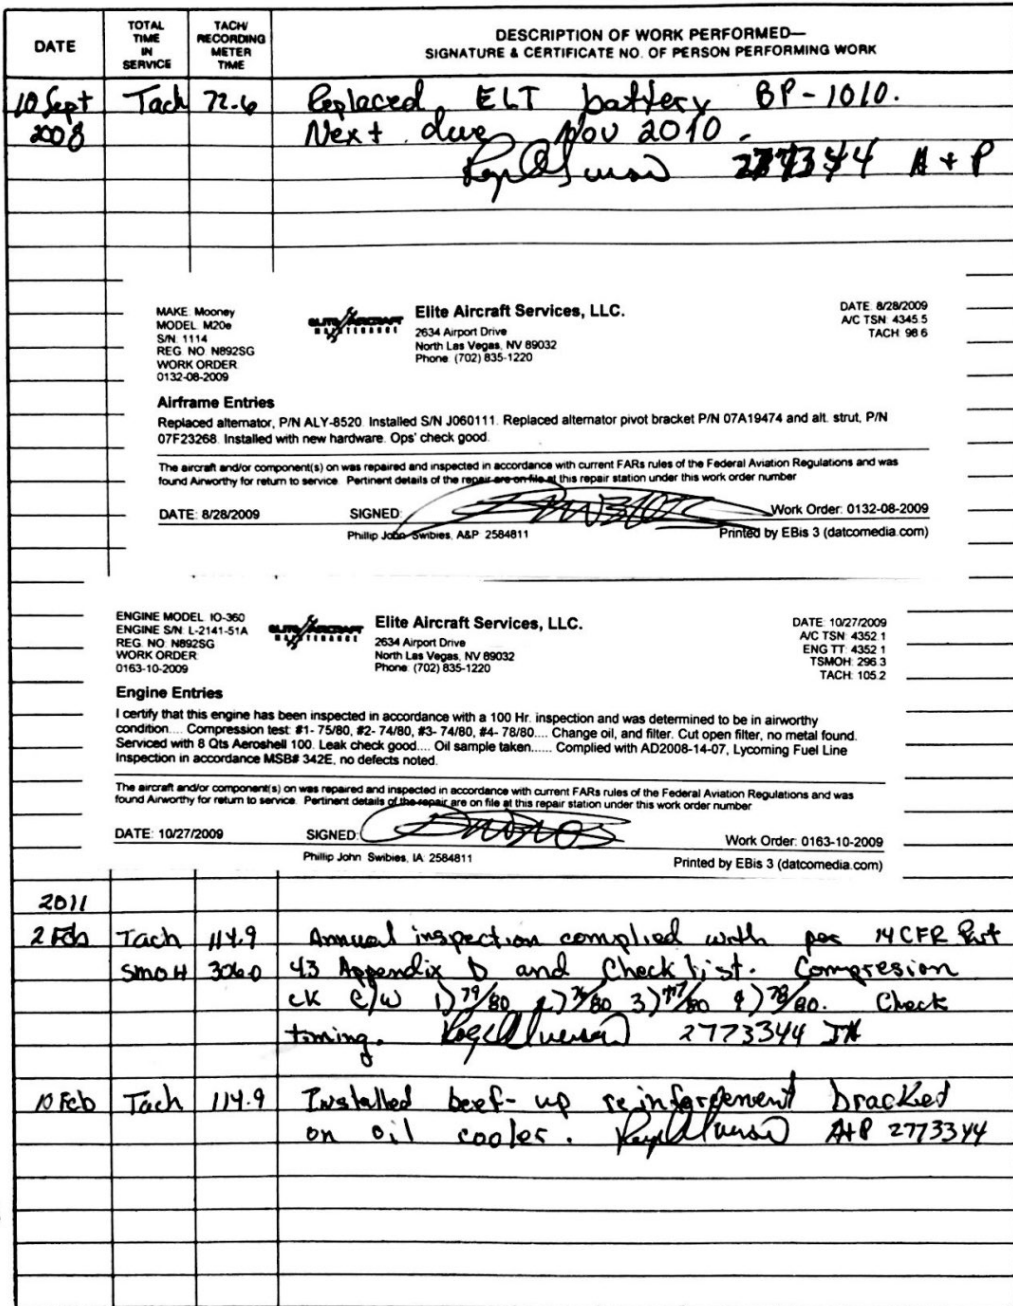 DATE
TOTAL TIME IN SERVICE
TACH/ RECORDING METER TIME
DESCRIPTION OF WORK PERFORMED—
SIGNATURE & CERTIFICATE NO. OF PERSON PERFORMING WORK
10 Sept Tach 72.6 Replaced ELT battery BP-1010.
2008 Next due Nov 2010.
2773344 A + P
MAKE: Mooney
MODEL: M20e
S/N: 1114
REG NO: N892SG
WORK ORDER:
0132-08-2009
ELITE AIRCRAFT
MAINTENANCE
Elite Aircraft Services, LLC.
2634 Airport Drive
North Las Vegas, NV 89032
Phone: (702) 835-1220
DATE: 8/28/2009
A/C TSN: 4345.5
TACH: 98.6
Airframe Entries
Replaced alternator, P/N ALY-8520. Installed S/N J060111. Replaced alternator pivot bracket P/N 07A19474 and alt. strut, P/N
07F23268. Installed with new hardware. Ops' check good.
The aircraft and/or component(s) on was repaired and inspected in accordance with current FARs rules of the Federal Aviation Regulations and was
found Airworthy for return to service. Pertinent details of the repair are on file at this repair station under this work order number
DATE: 8/28/2009 SIGNED: Work Order: 0132-08-2009
Phillip John Swibies, A&P 2584811 Printed by EBis 3 (datcomedia.com)
ENGINE MODEL: IO-360
ENGINE S/N: L-2141-51A
REG NO: N892SG
WORK ORDER:
0163-10-2009
ELITE AIRCRAFT
MAINTENANCE
Elite Aircraft Services, LLC.
2634 Airport Drive
North Las Vegas, NV 89032
Phone: (702) 835-1220
DATE: 10/27/2009
A/C TSN: 4352.1
ENG TT: 4352.1
TSMOH: 296.3
TACH: 105.2
Engine Entries
I certify that this engine has been inspected in accordance with a 100 Hr. inspection and was determined to be in airworthy
condition.... Compression test: #1- 75/80, #2- 74/80, #3- 74/80, #4- 78/80.... Change oil, and filter. Cut open filter, no metal found.
Serviced with 8 Qts Aeroshell 100. Leak check good.... Oil sample taken...... Complied with AD2008-14-07, Lycoming Fuel Line
Inspection in accordance MSB# 342E, no defects noted.
The aircraft and/or component(s) on was repaired and inspected in accordance with current FARs rules of the Federal Aviation Regulations and was
found Airworthy for return to service. Pertinent details of the repair are on file at this repair station under this work order number
DATE: 10/27/2009 SIGNED: Work Order: 0163-10-2009
Phillip John Swibies, IA 2584811 Printed by EBis 3 (datcomedia.com)
2011
2 Feb Tach 114.9 Annual inspection complied with per 14 CFR Part
SMOH 306.0 43 Appendix D and Check list. Compresion
ck C/W 1) 79/80 2) /80 3) 77/80 4) 78/80. Check
timing. 2773344 IA
10 Feb Tach 114.9 Installed beef-up reinforcement bracked
on oil cooler. A+P 2773344